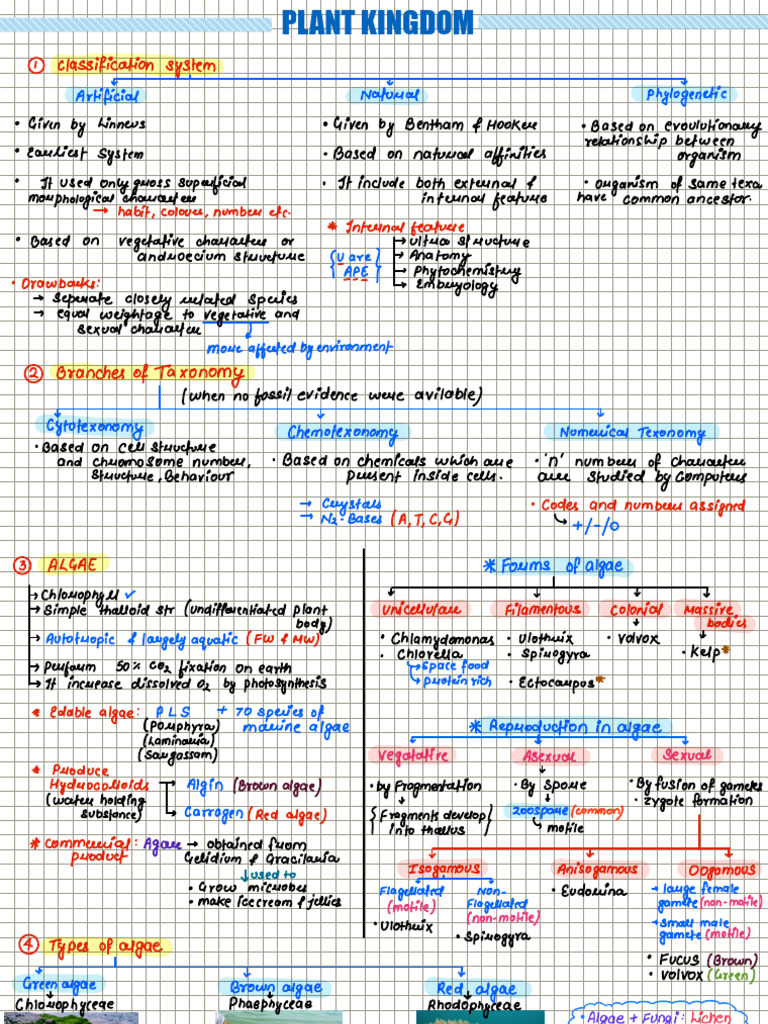 PLANT KINGDOM
① Classification system
Artificial
Natural
Phylogenetic
• Given by Linneus
• Earliest System
• It used only gross superficial
morphological characters
→ habit, colour, number etc.
• Based on vegetative characters or
androecium structure
• Drawbacks:
→ Seperate closely related species
→ equal weightage to vegetative and
sexual character
more affected by environment
• Given by Bentham & Hooker
• Based on natural affinities
• It include both external &
internal feature
* Internal feature
{U are}
{APE}
→ Ultra structure
→ Anatomy
→ Phytochemistry
→ Embryology
• Based on evoulutionary
relationship between
organism
• organism of same texa
have common ancestor.
② Branches of Taxonomy
(when no fossil evidence were avilable)
Cytotexonomy
Chemotexonomy
Numerical Texonomy
• Based on cell structure
and chromosome number,
structure, Behaviour
• Based on chemicals which are
present inside cells.
→ Crystals
→ N2-Bases (A, T, C, G)
• 'n' number of character
are studied by Computers
• Codes and number assigned
+/-/0
③ ALGAE
→ Chlorophyll ✓
→ Simple thalloid str (undifferentiated plant
body)
→ Autotropic & largely aquatic (FW & MW)
→ Perform 50% CO2 fixation on earth
→ It increase dissolved O2 by photosynthesis
* Edable algae: P L S + 70 species of
marine algae
(Porphyra)
(Laminaria)
(Sargassam)
* Produce
Hydrocolloids
(water holding
substance)
→ Algin (Brown algae)
→ Carrogen (Red algae)
* Commercial
product
: Agar → obtained from
Gelidium & Gracilaria
used to
• Grow microbes
• make Icecream & jellies
* Forms of algae
Unicellular
Filamentous
Colonial
Massive
bodies
• Chlamydomonas
• Chlorella
→ Space food
→ protein rich
• Ulothrix
• Spirogyra
• Ectocarpus*
• Volvox
• Kelp*
* Reproduction in algae
Vegatative
Asexual
Sexual
• by Fragmentation
{Fragments develop}
{into thallus}
• By Spore
zoospore (common)
motile
• By fusion of gametes
• zygote formation
Isogamous
Anisogamous
Oogamous
Flagellated
(motile)
• Ulothrix
Non-
Flagellated
(non-motile)
• Spirogyra
• Eudorina
→ large female
gamete (non-motile)
→ Small male
gamete (motile)
• FUCUS (Brown)
• VOLVOX (Green)
④ Types of algae
Green algae
Chlorophyceae
Brown algae
Phaephyceae
Red algae
Rhodophyceae
• Algae + Fungi: Lichen